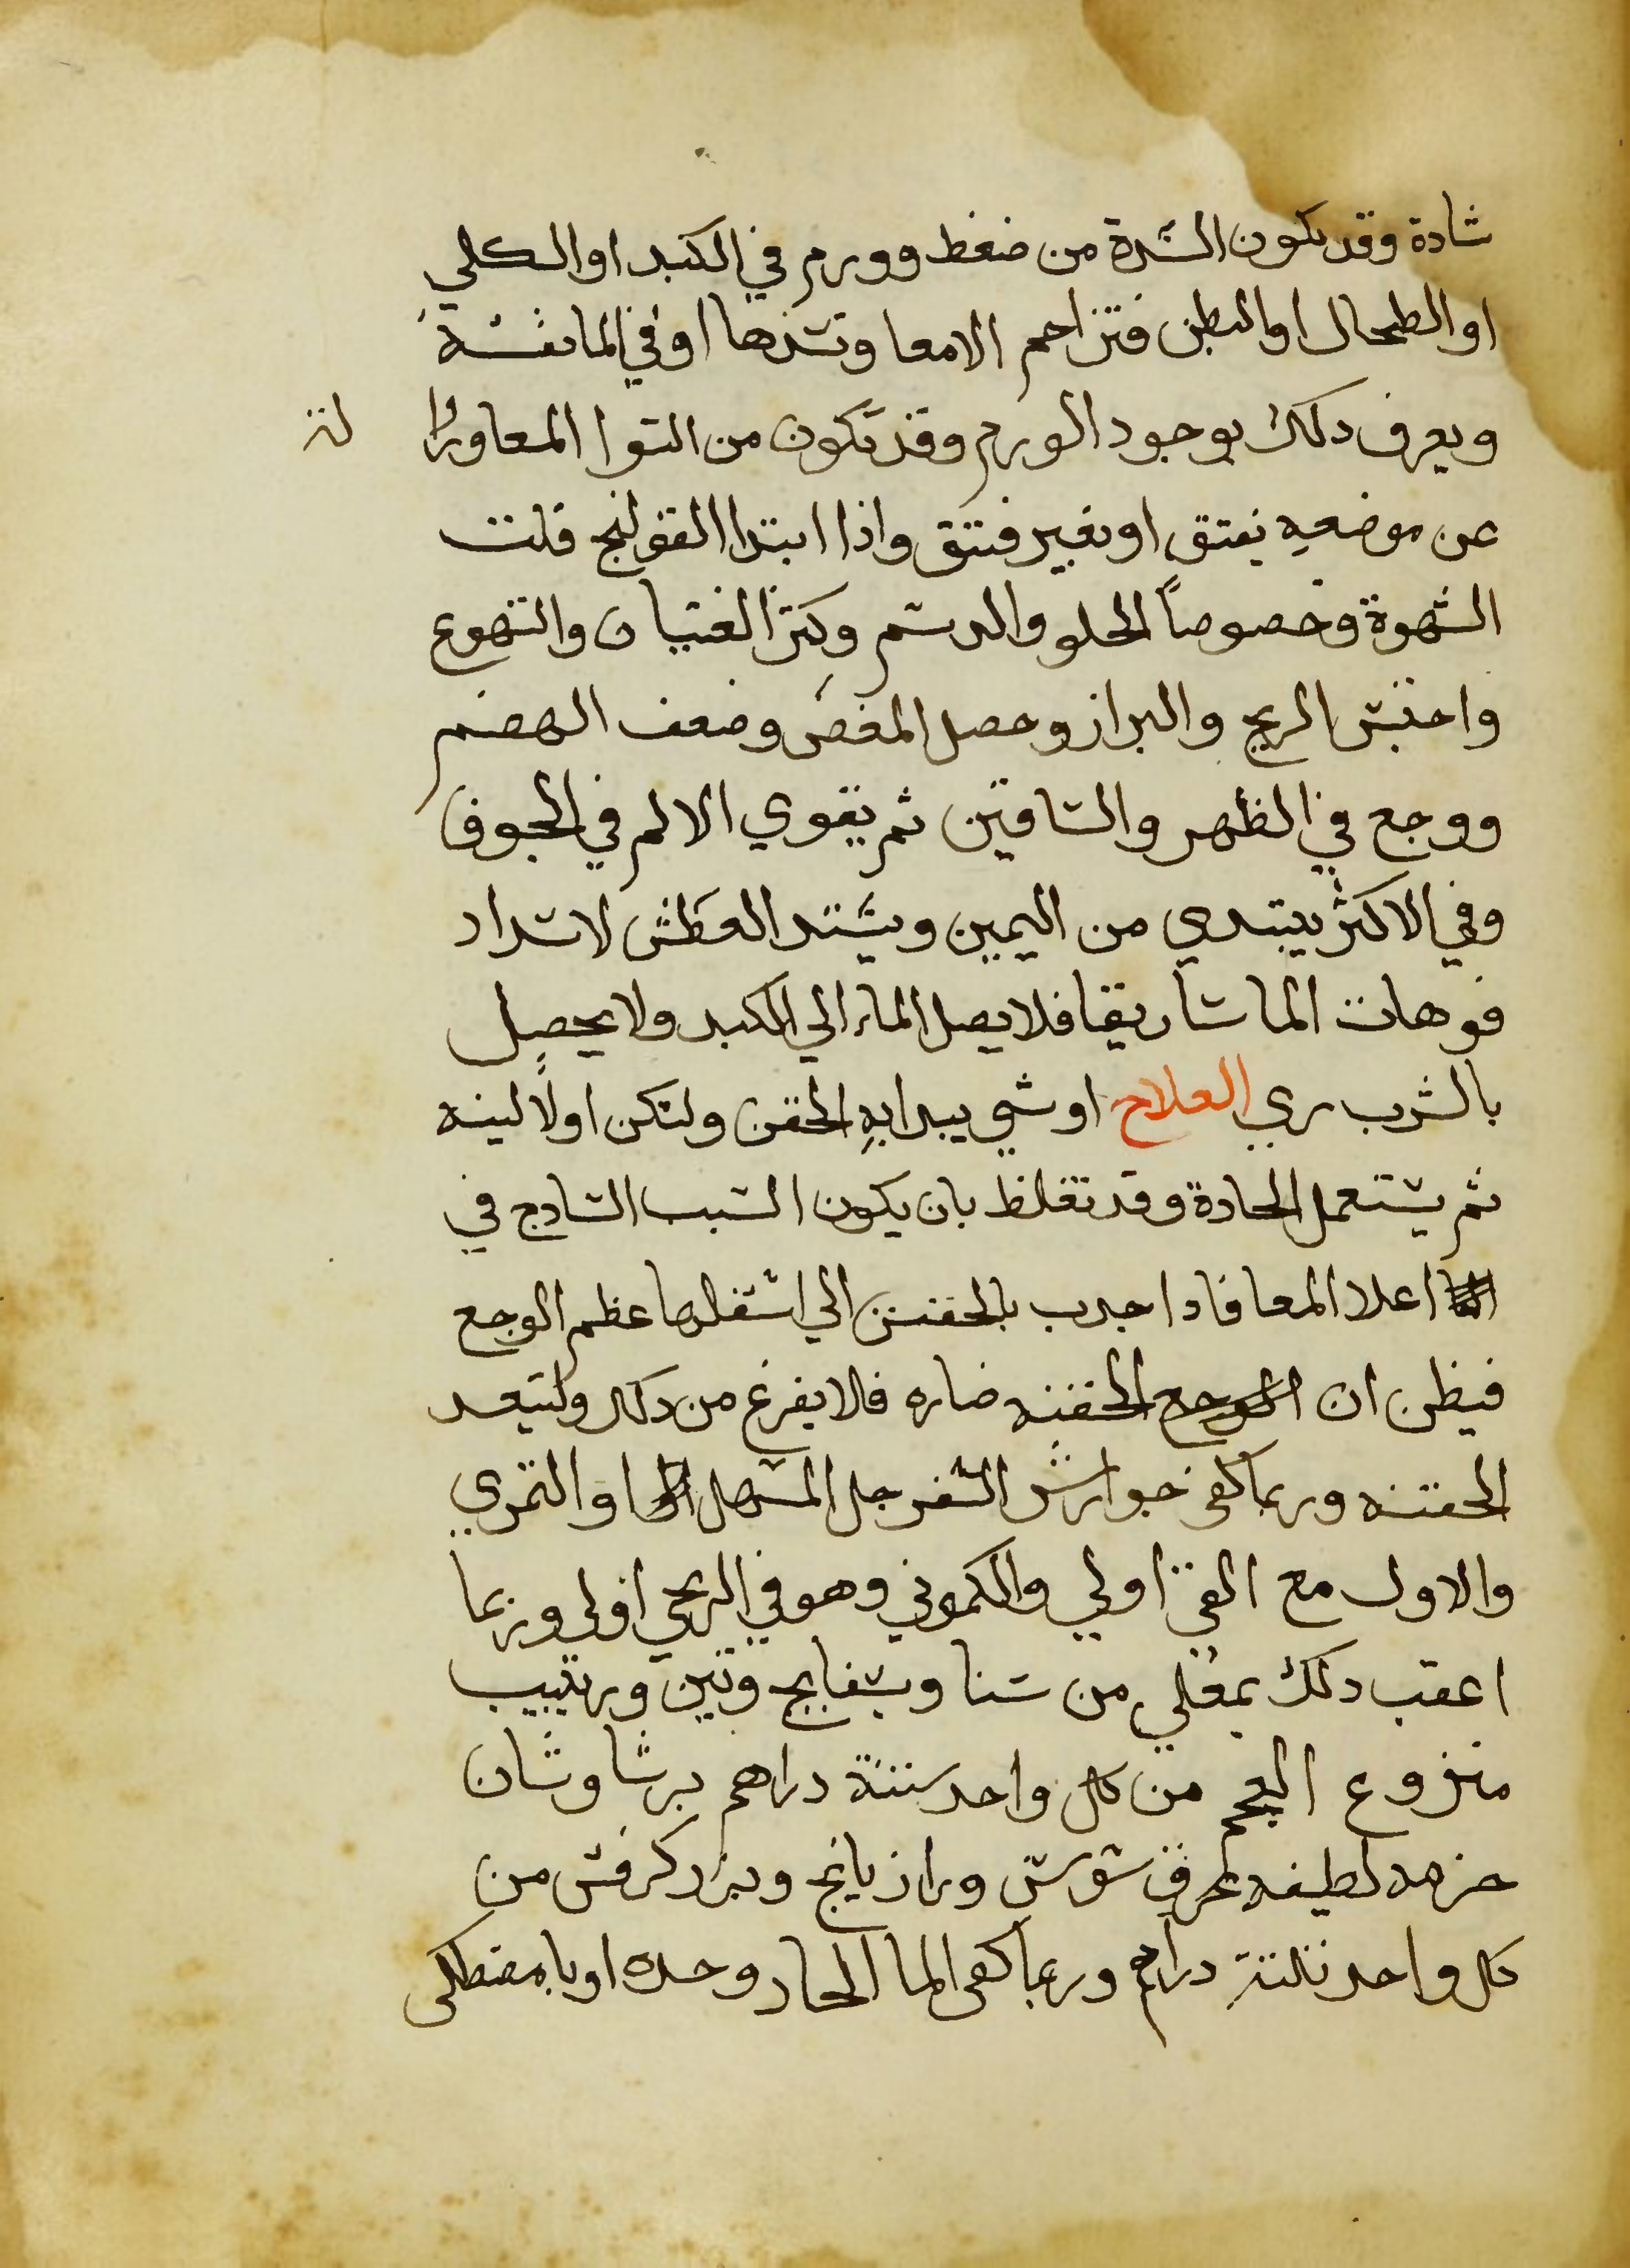 شادة وقد يكون السدة من ضغط وورم في الكبد او الكلي
او الطحال او البطن فتزاحم الامعا وتسدها او في المانفسه
ويعرف دلك بوجود الورم وقد تكون من التوا المعا وزوا
لته
عن موضعه بفتق او بغير فتق واذا ابتدا القولنج قلت
الشهوة وخصوصاً الحلو والدسم وكثر الغثيان والتهوع
واحتبس الريح والبراز وحصل المغص وضعف الهضم
ووجع في الظهر والساقين ثم يقوي الالم في الجوف
وفي الاكثر يبتدي من اليمين ويشتد العطش لانسداد
فوهات الماساريقا فلا يصل الماء الي الكبد ولا يحصل
بالشرب ري العلاج اوشي يبدا به الحقن ولتكن اولا لينه
ثم يستعمل الحادة وقد تغلط بان يكون السبب السادج في
اعلا المعا فادا جدب بالحقنن الي اسفلها عظم الوجع
فيظن ان الوجع الحقنه ضاره فلا يفرغ من دلك ولتيعد
الحقنه وربما كفي جوارش السفرجل المسهل او التمري
والاول مع القي اولي والكموني وهو في الريحي اولي وربما
اعقب دلك بمغلي من سنا وبسفايج وتين وزبيب
منزوع العجم من كل واحد ستة دراهم برشاوشان
حزمه لطيفه عرق سوس ورازيانج وبزر كرفس من
كل واحد ثلثة دراهم وربما كفي الما الحار وحده او بامصطكي